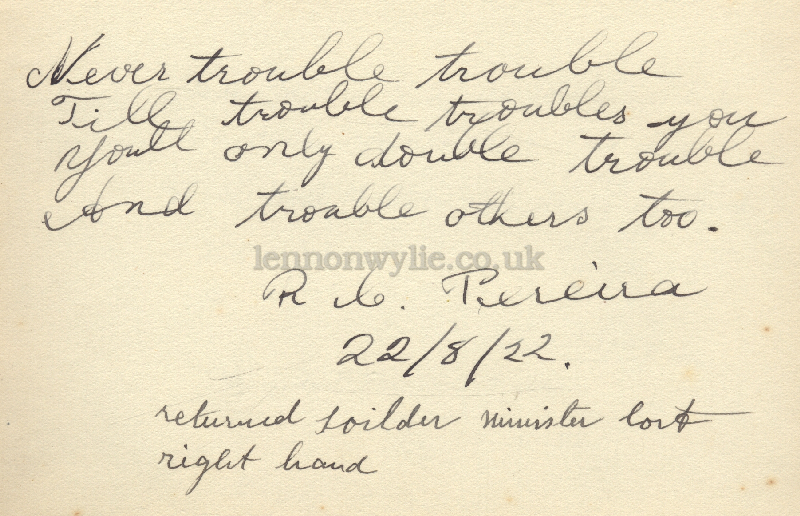 Never trouble trouble
Till trouble troubles you
You'll only double trouble
And trouble others too.
lennonwylie.co.uk
R. C. Pereira
22/8/22.
returned soilder minister lost
right hand